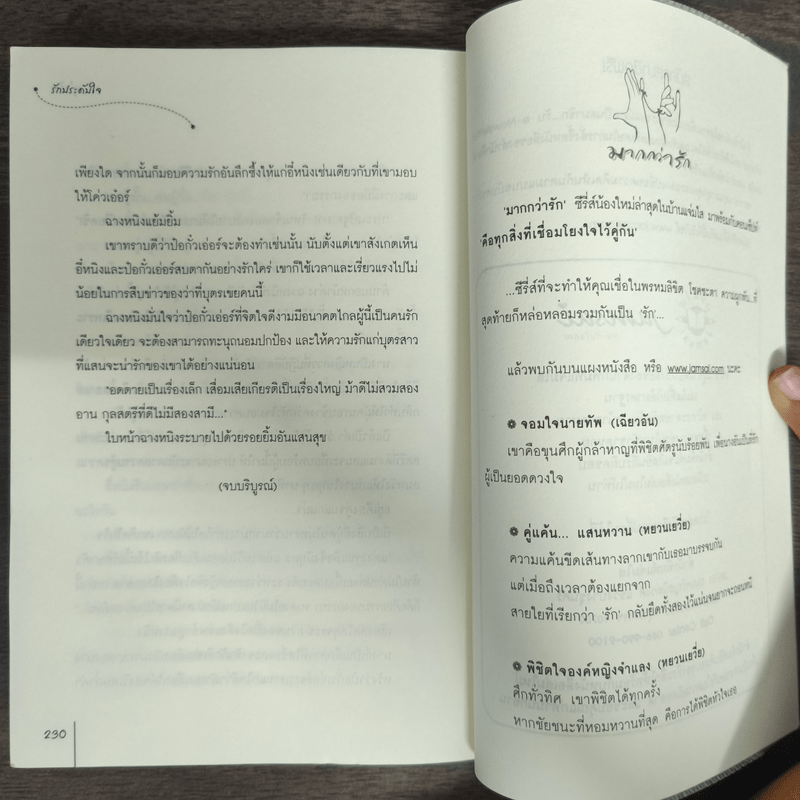 รักประดับใจ
เพียงใด จากนั้นก็มอบความรักอันลึกซึ้งให้แก่อี่หนิงเช่นเดียวกับที่เขามอบ
ให้โค่วเอ๋อร์
ฉางหนิงแย้มยิ้ม
เขาทราบดีว่าป๋อกั๋วเอ่อร์จะต้องทำเช่นนั้น นับตั้งแต่เขาสังเกตเห็น
อี่หนิงและป๋อกั๋วเอ่อร์สบตากันอย่างรักใคร่ เขาก็ใช้เวลาและเรี่ยวแรงไปไม่
น้อยในการสืบข่าวของว่าที่บุตรเขยคนนี้
ฉางหนิงมั่นใจว่าป๋อกั๋วเอ่อร์ที่จิตใจดีงามมีอนาคตไกลผู้นี้เป็นคนรัก
เดียวใจเดียว จะต้องสามารถทะนุถนอมปกป้อง และให้ความรักแก่บุตรสาว
ที่แสนจะน่ารักของเขาได้อย่างแน่นอน
'อดตายเป็นเรื่องเล็ก เสื่อมเสียเกียรติเป็นเรื่องใหญ่ ม้าดีไม่สวมสอง
อาน กุลสตรีที่ดีไม่มีสองสามี...'
ใบหน้าฉางหนิงระบายไปด้วยรอยยิ้มอันแสนสุข
(จบบริบูรณ์)
230
มากกว่ารัก
'มากกว่ารัก' ซีรี่ส์น้องใหม่ล่าสุดในบ้านแจ่มใส มาพร้อมกับคอนเซ็ปต์
'คือทุกสิ่งที่เชื่อมโยงใจไว้คู่กัน'
...ซีรี่ส์ที่จะทำให้คุณเชื่อในพรหมลิขิต โชคชะตา ความผูกพัน...ที่
สุดท้ายก็หล่อหลอมรวมกันเป็น 'รัก'...
แล้วพบกันบนแผงหนังสือ หรือ www.jamsai.com นะคะ
จอมใจนายทัพ (เฉียวอัน)
เขาคือขุนศึกผู้กล้าหาญที่พิชิตศัตรูนับร้อยพัน เพื่อนางอันเป็นที่รัก
ผู้เป็นยอดดวงใจ
คู่แค้น... แสนหวาน (หยวนเยวี่ย)
ความแค้นขีดเส้นทางลากเขากับเธอมาบรรจบกัน
แต่เมื่อถึงเวลาต้องแยกจาก
สายใยที่เรียกว่า 'รัก' กลับยึดทั้งสองไว้แน่นจนยากจะถอนหนี
พิชิตใจองค์หญิงจำแลง (หยวนเยวี่ย)
ศึกทั่วทิศ เขาพิชิตได้ทุกครั้ง
หากชัยชนะที่หอมหวานที่สุด คือการได้พิชิตหัวใจเธอ